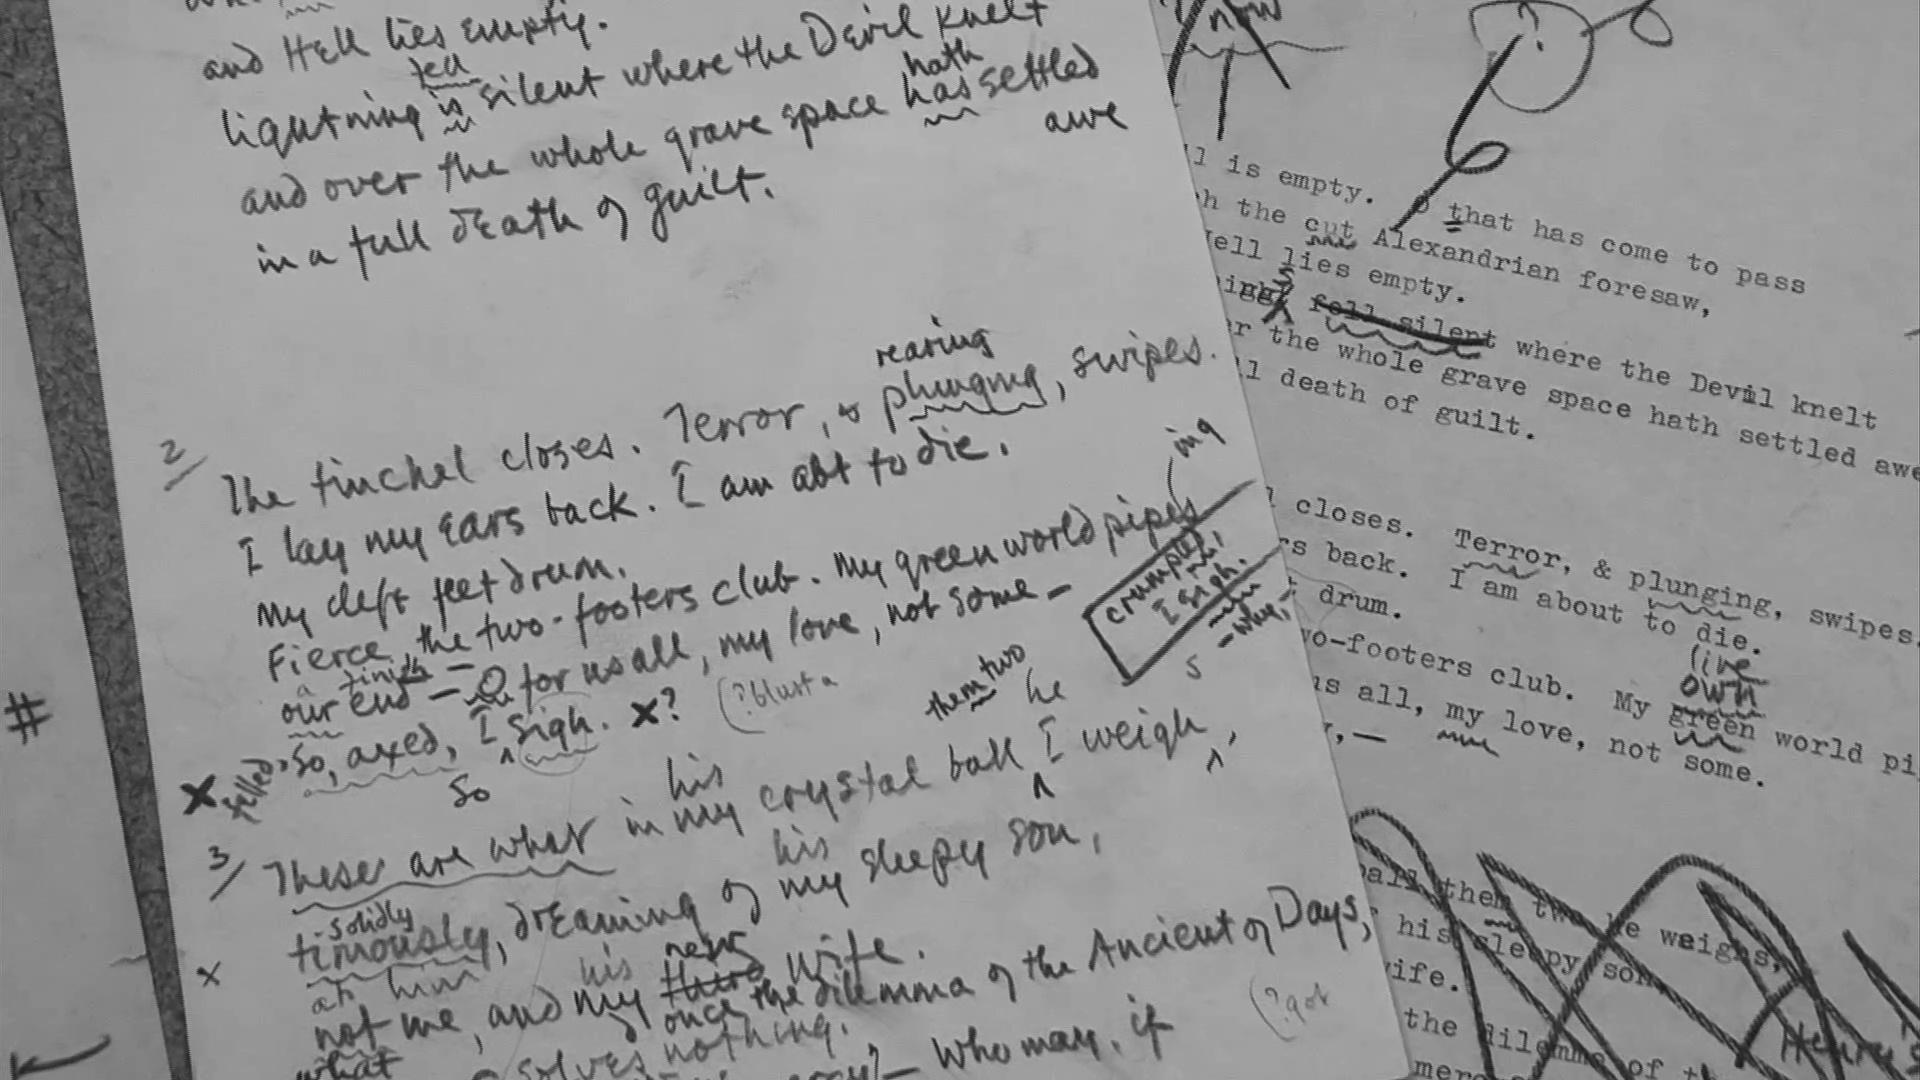 and Hell lies empty.
fell
lightning is silent where the Devil knelt
hath
and over the whole grave space has settled
awe
in a full death of guilt.
rearing
2/ The tinchel closes. Terror, & plunging, swipes.
I lay my ears back. I am abt to die.
ing
My cleft feet drum.
Fierce, the two-footers club. My green world pipes
crumpled,
I sigh.
a finish
our end — O for us all, my love, not some —
— why, —
s
x So, axed, I sigh. x? (?blust a
So
them two he
his
3/ These are what in my crystal ball I weigh,
his
solidly
x timously, dreaming of my sleepy son,
at him his new
not me, and my third wife.
once the dilemma of the Ancient of Days,
what solves nothing.
(?got
— who may, if
#
now
?
ll is empty. O that has come to pass
h the cut Alexandrian foresaw,
Hell lies empty.
s
ing fell silent where the Devil knelt
r the whole grave space hath settled awe
ll death of guilt.
l closes. Terror, & plunging, swipes.
rs back. I am about to die.
t drum.
live
own
wo-footers club. My green world pi
us all, my love, not some.
y,—
ball them two he weighs,
his sleepy son,
wife.
the dilemma of t
merc
Henry's